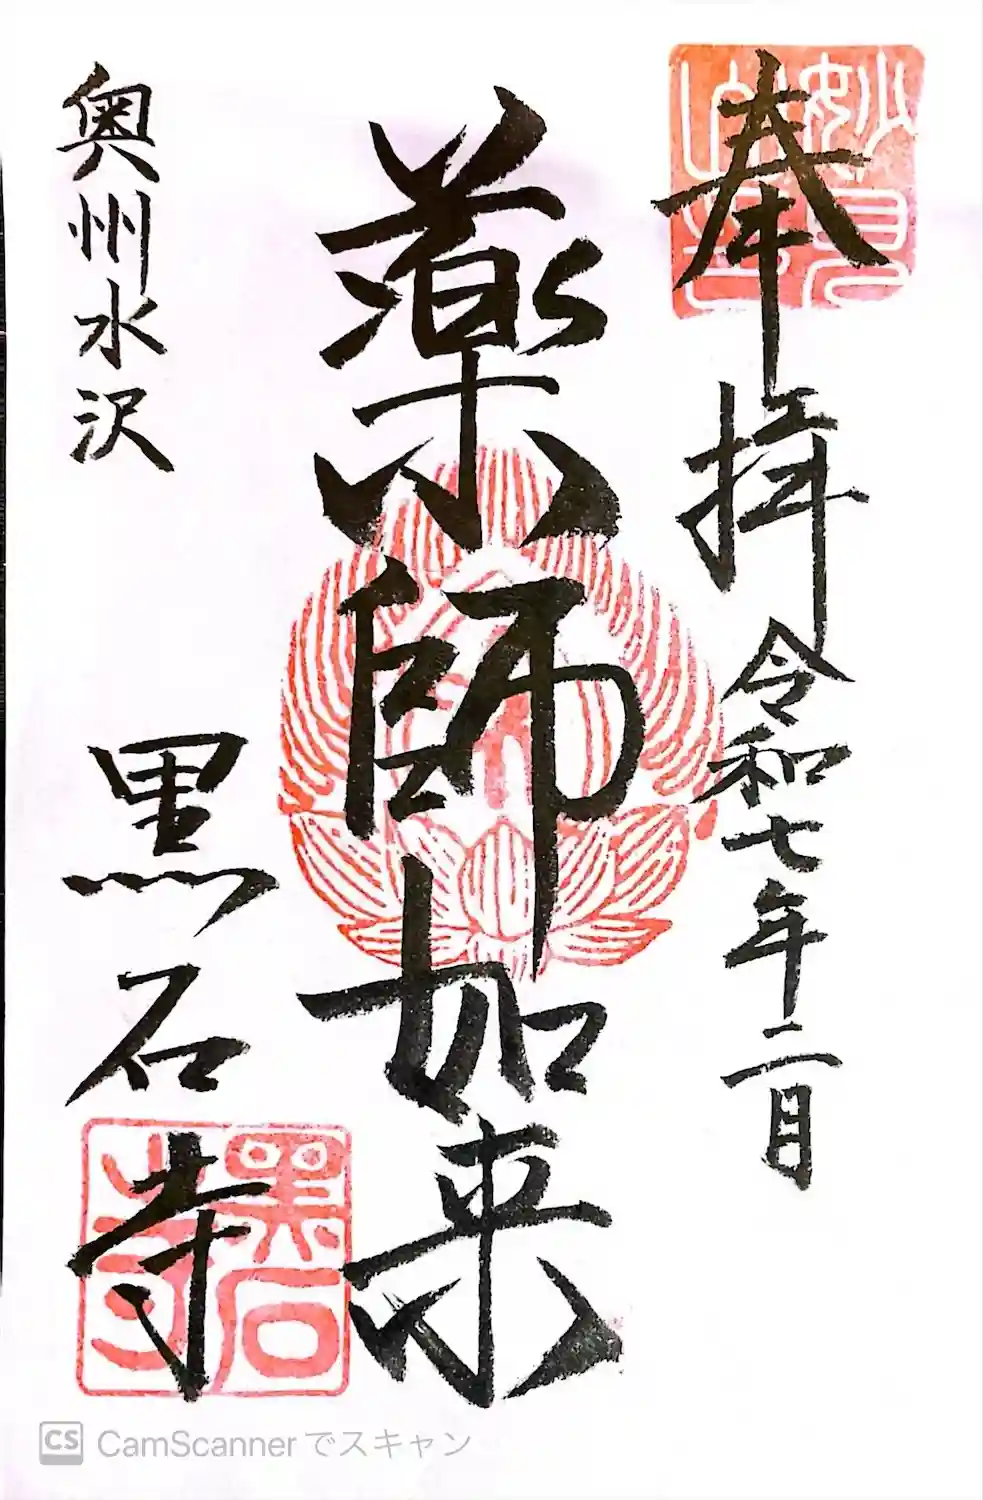 奉拝
令和七年二月
薬師如来
奥州水沢
黒石寺
黒石寺
CS CamScannerでスキャン